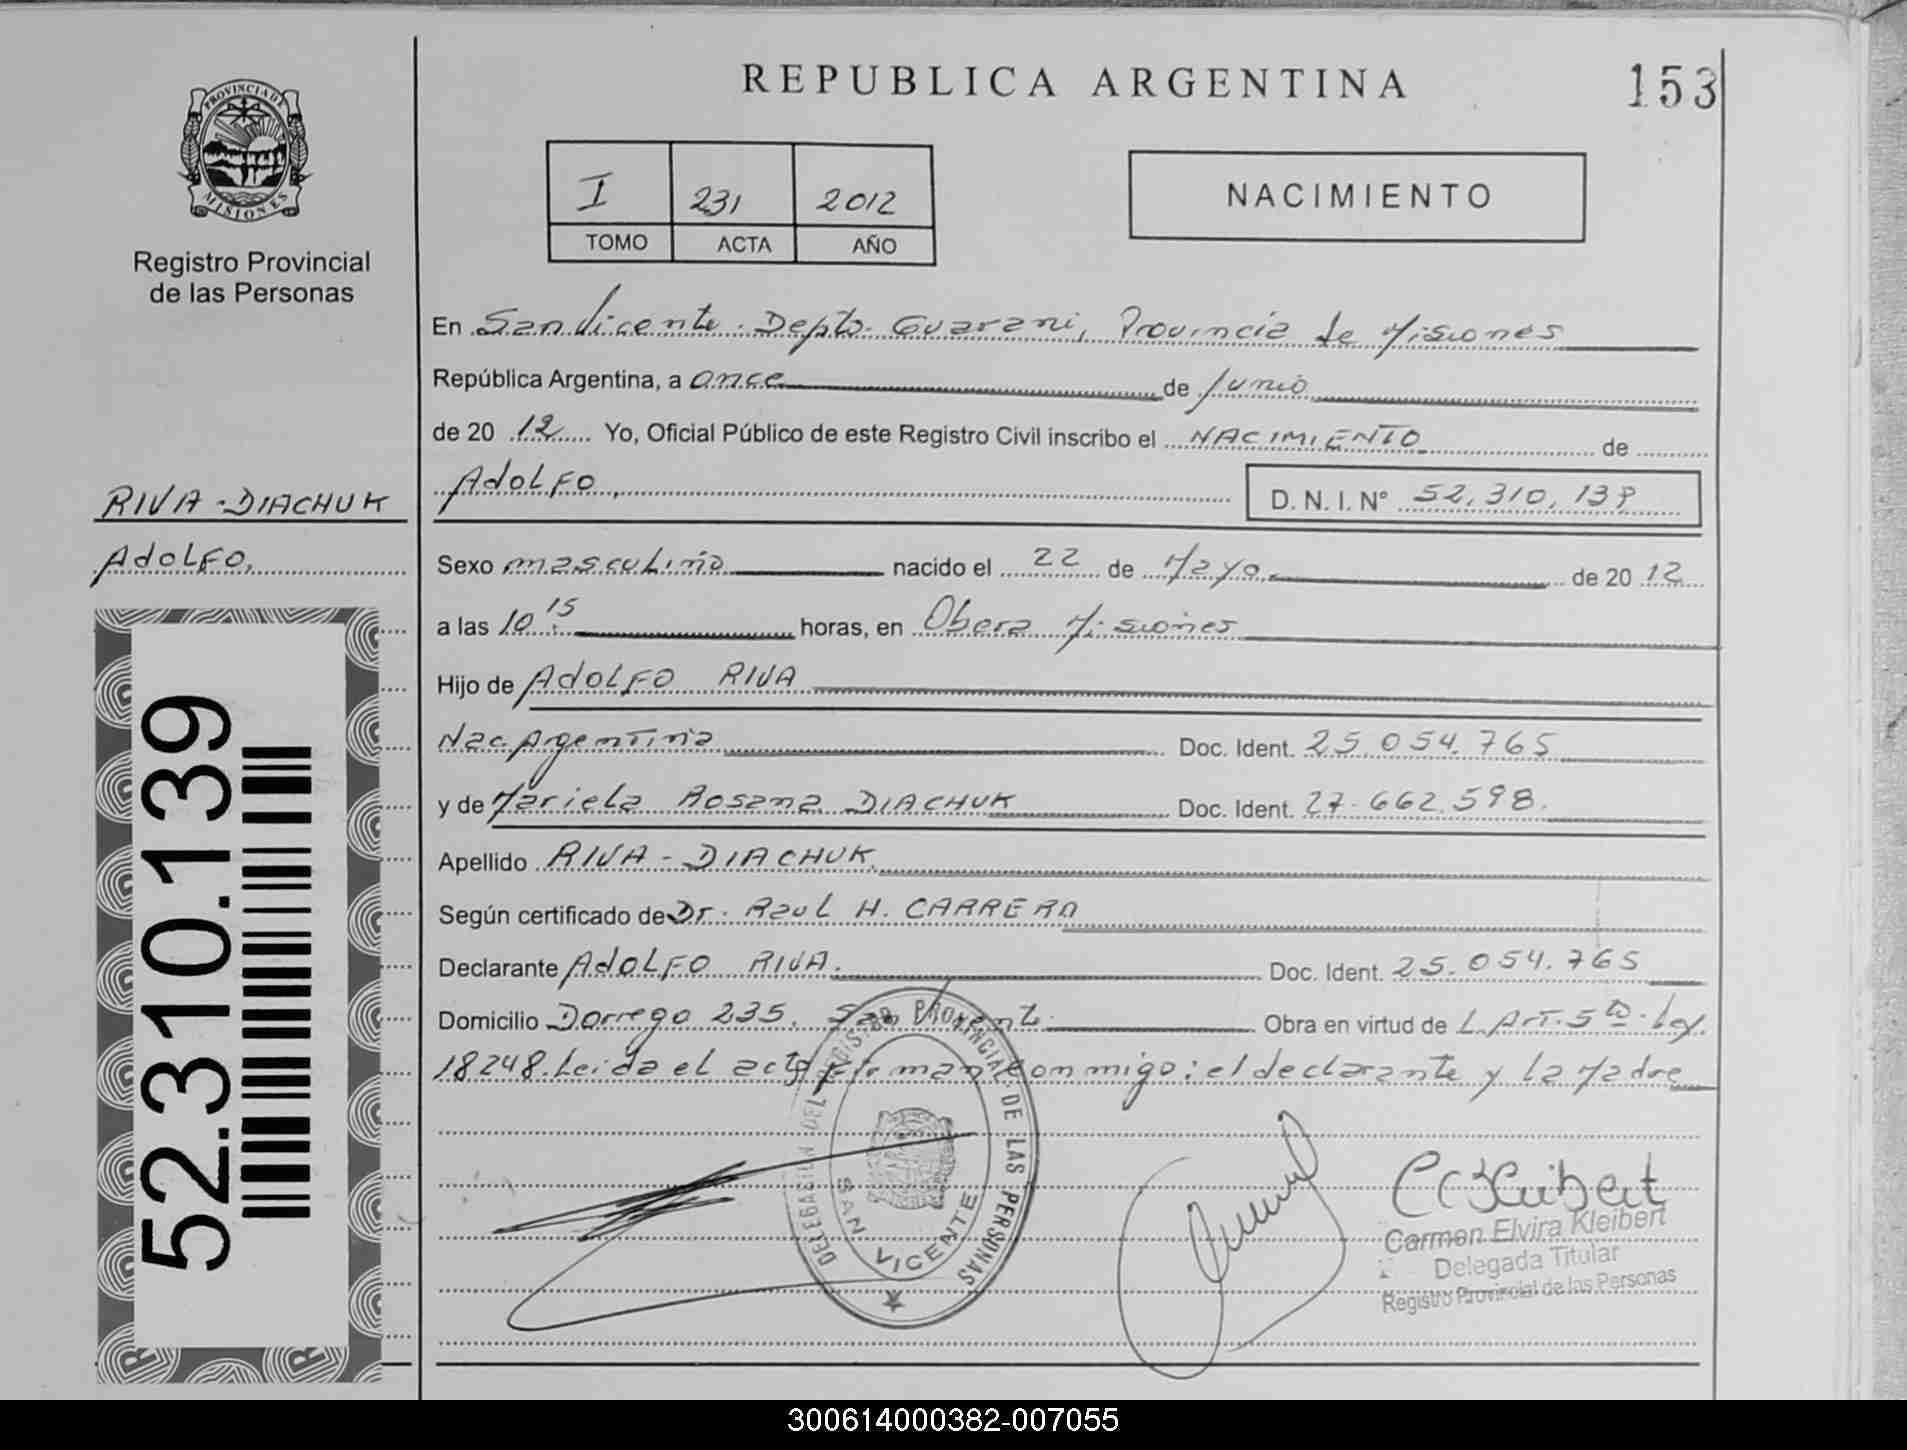 REPUBLICA ARGENTINA
153
PROVINCIA DE
MISIONES
Registro Provincial
de las Personas
I 231 2012
TOMO ACTA AÑO
NACIMIENTO
En San Vicente. Depto. Guarani, Provincia de Misiones
República Argentina, a once de Junio
de 20 12 Yo, Oficial Público de este Registro Civil inscribo el NACIMIENTO de
Adolfo, D. N. I. Nº 52.310.139
RIVA - DIACHUK
Adolfo.
Sexo masculino nacido el 22 de Mayo de 20 12
a las 10.15 horas, en Obera Misiones
Hijo de Adolfo RIVA
Nac. Argentina Doc. Ident. 25.054.765
y de Mariela Rosana DIACHUK Doc. Ident. 27.662.598.
Apellido RIVA - DIACHUK.
Según certificado de Dr. Raul H. CARRERA
Declarante Adolfo RIVA. Doc. Ident. 25.054.765
Domicilio Dorrego 235. San Vicente. Obra en virtud de L. Art. 5to. Ley.
18248. Leida el acta firman conmigo: el declarante y la Madre
52.310.139
DELEGACION DEL REGISTRO PROVINCIAL DE LAS PERSONAS
SAN VICENTE
C E Kleibert
Carmen Elvira Kleibert
Delegada Titular
Registro Provincial de las Personas
300614000382-007055